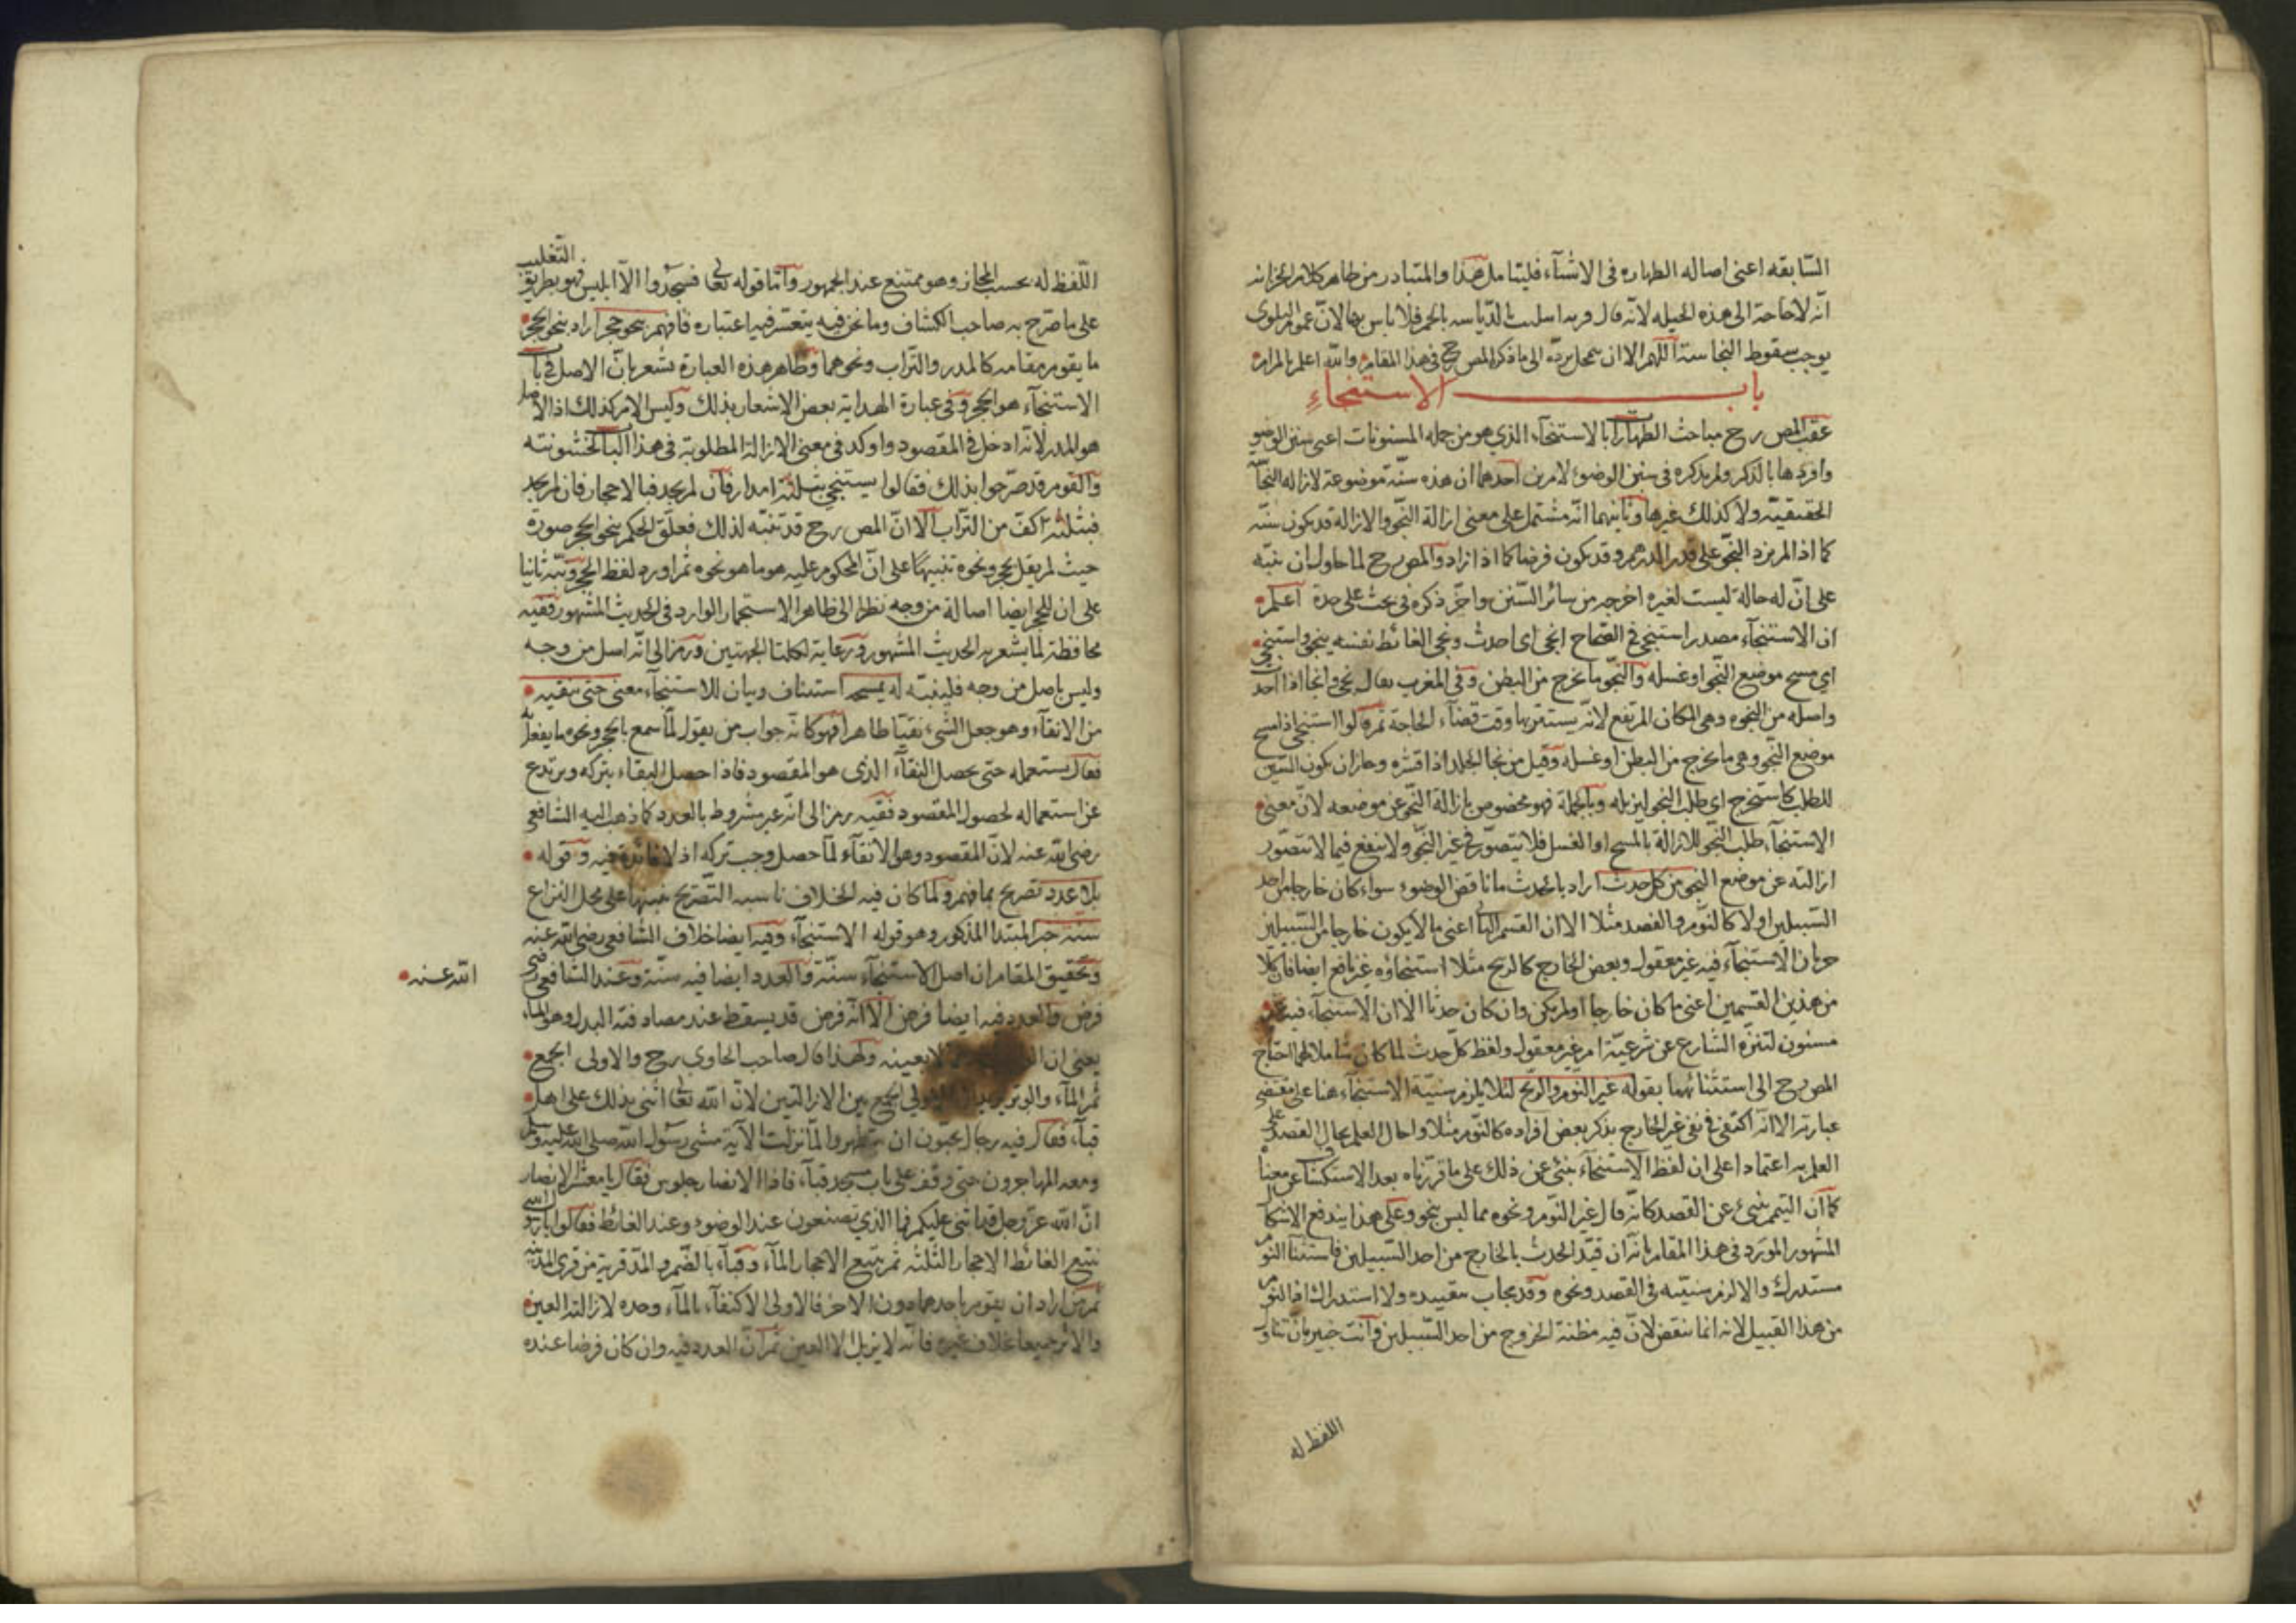 السابقه اعنى اصاله الطهاره فى الاشيآء فليتامل هذا والمتبادر من ظاهر كلام الخزانه
انّه لا حاجة الى هذه الحيله لانّه قال بالخمر فلا باس بها لانّ عموم البلوى
يوجب سقوط النجاسة اللّهم الا ان ردّه الى ما ذكر المص رح فى هذا المقام والله اعلم بالمرام
باب الاستنجاء
عقب المص رح مباحث الطهارا بالاستنجآء الذي هو من جمله المسنونات اعنى سنن الوضو
وافردها بالذكر ولم يذكره فى سنن الوضوء لامرين احدهما ان هذه سنّة موضوعة لازاله النجا
الحقيقيّة ولا كذلك غيرها وثانيهما انّه مشتمل على معنى ازالة النجو والازالة قد يكون سنّه
كما اذا لم يزد النجو على قدر الدرهم وقد يكون فرضا كما اذا زاد والمص رح لما حاول ان ينبّه
على انّ له حالة ليست لغيره اخرجه من سائر السّنن واخّر ذكره فى بحث على حدة اعلم
ان الاستنجآء مصدر استنجى فى الصّحاح انجى اى احدث ونجى الغائط نفسه ينجو واستنجى
اي مسح موضع النّجو او غسله والنّجو ما يخرج من البطن وفى المغرب يقال نجى وانجا اذا احدث
واصله من النجوه وهى المكان المرتفع لانّه يستتر بها وقت قضآء الحاجة ثم قالوا استنجى اذا مسح
موضع النّجو وهى ما يخرج من البطن او غسله وقيل من نجا الجلد اذا قشره وجاز ان يكون السّين
للطلب كاستخرج اى طلب النجو ليزيله وبالجملة فهو مخصوص بازالة النّجو عن موضعه لانّ معنى
الاستنجآء طلب النّجو للازالة بالمسح او الغسل فلا يتصوّر فى غير النّجو ولا ينفع فيما لا يتصوّر
ازالته عن موضع النجو من كل حدث اراد بالحدث ما ناقض الوضوء سواء كان خارجا من احد
السّبيلين او لا كالنّوم والفصد مثلا الا ان القسم الثا اعنى ما لا يكون خارجا من السّبيلين
جريان الاستنجآء فيه غير معقول وبعض الخارج كالريح مثلا استنجاؤه غير نافع ايضا فان كلّا
من هذين القسمين اعنى ما كان خارجا او لم يكن وان كان حدثا الّا ان الاستنجآء فيه غير
مسنون لتنزّه الشارع عن شرعيّة امر غير معقول ولفظ كلّ حدث لما كان شاملا لهما احتاج
المص رح الى استثنائهما بقوله غير النوم والرّيح لئلا يلزم سنيّة الاستنجآء هنا على مقتضى
عبارته الا انّه اكتفى فى نفى غير الخارج بذكر بعض افراده كالنّوم مثلا واحال العلم بحال الفصد على
العلم به اعتمادا على ان لفظ الاستنجآء ينبئ عن ذلك على ما قررناه بعد الاستكشا عن معناه
كما ان التيمم ينبئ عن القصد كانّه قال غير النّوم ونحوه مما ليس بنجو وعلى هذا يندفع الاشكال
المشهور المورد فى هذا المقام بانّه ان قيّد الحدث بالخارج من احد السّبيلين فاستثنآ النوم
مستدرك والا لزم سنيّته فى الفصد ونحوه وقد يجاب بتقييده ولا استدراك اذ النوم
من هذا القبيل لانه انما ينقض لانّ فيه مظنة الخروج من احد السّبيلين وانت خبير بانّ تناول
اللفظ له
التّغليب
اللّفظ له بحسب المجاز وهو ممتنع عند الجمهور وامّا قوله تعا فسجدوا الّا ابليس فهو بطريق
على ما صّرح به صاحب الكشاف وما نحن فيه يتعسّر فيه اعتباره فافهم بنحو حجر اراد بنحو الحجر
ما يقوم مقامه كالمدر والتّراب ونحوهما وظاهر هذه العبارة تشعر بانّ الاصل فى باب
الاستنجآء هو الحجر وفى عبارة الهداية بعض الاشعار بذلك وليس الامر كذلك اذ الاصل
هو المدر لانّه ادخل فى المقصود واوكد فى معنى الازالة المطلوبة فى هذا البا لخشونته
والقوم قد صّرحوا بذلك فقالوا يستنجى بثلثة امدار فان لم يجد فبالاحجار فان لم يجد
فبثلثة اكفّ من التّراب الا انّ المص رح قد تنبّه لذلك فعلّق الحكم بنحو الحجر صورة
حيث لم يقل بحجر ونحوه تنبيها على انّ المحكوم عليه هو ما هو نحوه ثم اورد لفظ الحجر ونبّه ثانيا
على ان للحجر ايضا اصالة من وجه نظرا الى ظاهر الاستجمار الوارد فى الحديث المشهور ففيه
محافظة لما يشعر به الحديث المشهور ورعاية لكلتا الجهتين ورمز الى انّه اصل من وجه
وليس باصل من وجه فلينبّه له يمسحه استيناف وبيان للاستنجآء معنى حتى ينقيه
من الانقآء وهو جعل الشىء نقيّا طاهرا فهو كانّه جواب من يقول لمّا سمع بالحجر ونحوه ما يفعل به
فقال يستعمله حتى يحصل النقآء الذى هو المقصود فاذا حصل النقاء يتركه ويرتدع
عن استعماله لحصول المقصود ففيه رمز الى انّه غير مشروط بالعدد كما ذهب اليه الشافعى
رضى الله عنه لانّ المقصود وهو الانقآء لمّا حصل وجب تركه اذ لا فائدة فيه وقوله
بلا عدد تصريح بما فهم ولما كان فيه الخلاف ناسبه التّصريح تنبيها على محل النزاع
سنّة خبر المبتدا المذكور وهو قوله الاستنجآء وفيه ايضا خلاف الشافعى رضى الله عنه
وتحقيق المقام ان اصل الاستنجآء سنّة والعدد ايضا فيه سنّة وعند الشافعى رضى
الله عنه
فرض والعدد فيه ايضا فرض الّا انّه فرض قد يسقط عند مصادفته البدل وهو الماء
يعنى ان لا بعينه ولهذا قال صاحب الحاوى رح والاولى الجمع
ثم المآء والوتر الجمع بين الازالتين لانّ الله تعا اثنى بذلك على اهل
قبآء فقال فيه رجال يحبون ان يتطهروا لمّا نزلت الآية مشى رسول الله صلى الله عليه وسلم
ومعه المهاجرون حتى وقف على باب مسجد قبآء فاذا الانصار جلوس فقال يا معشر الانصار
انّ الله عزّ وجل قد اثنى عليكم فما الذي تصنعون عند الوضوء وعند الغائط فقالوا يا رسول الله
نتبع الغائط الاحجار الثّلثه ثم نتبع الاحجار المآء وقبآء بالضّم والمدّ قرية من قرى المدينه
ثم من اراد ان يقوم باحدهما دون الآخر فالاولى الاكتفآء بالمآء وحده لازالته العين
والاثر جميعا بخلاف غيره فانّه لا يزيل الا العين ثم انّ العدد فيه وان كان فرضا عنده